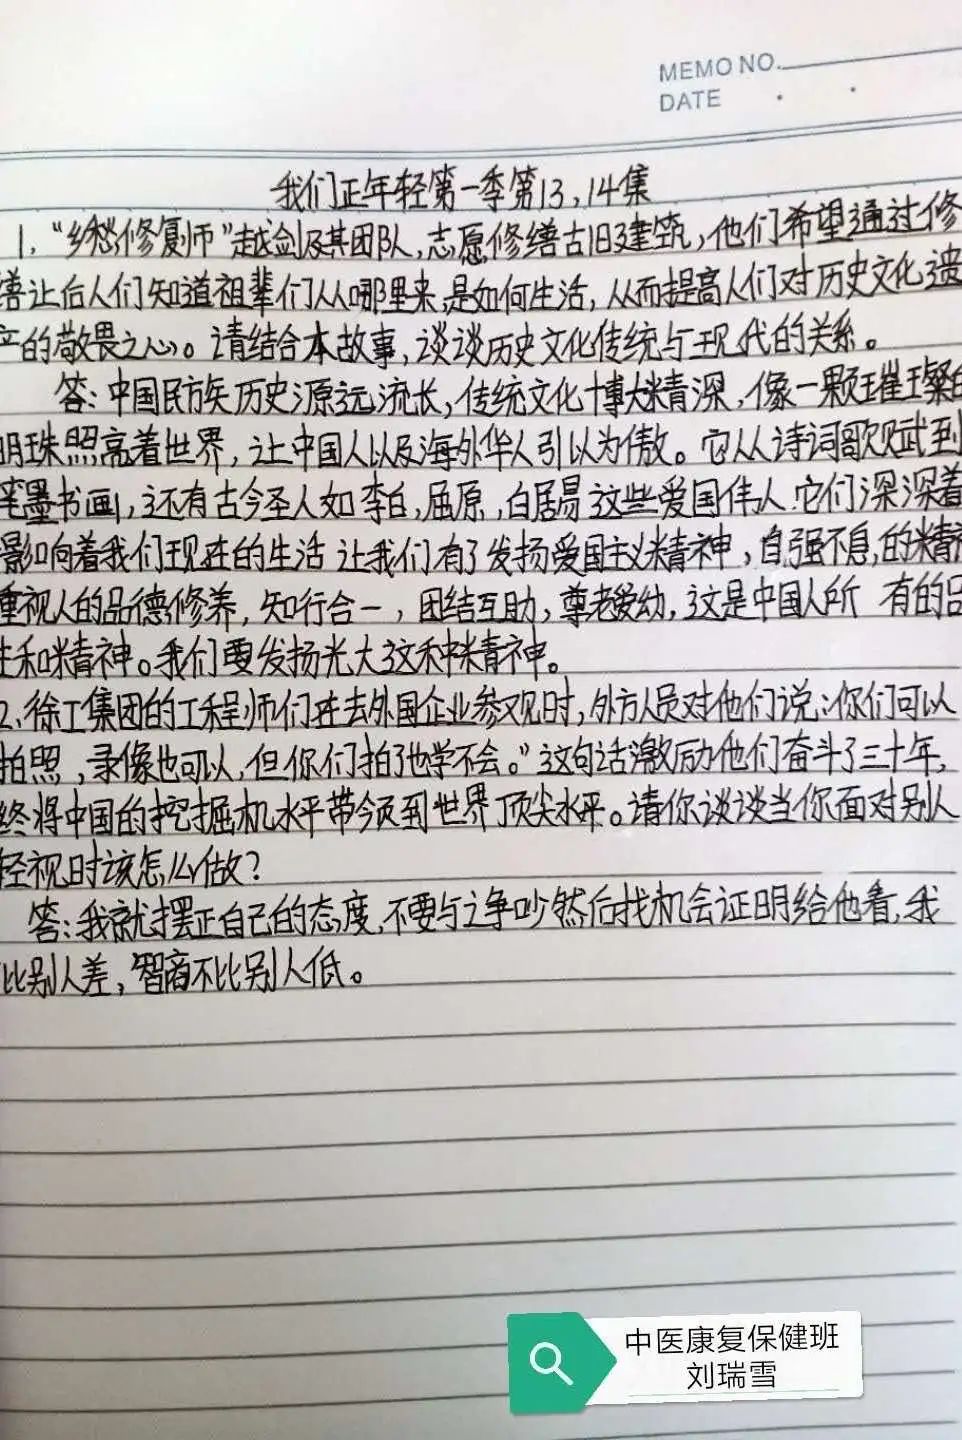 MEMO NO.
DATE
我们正年轻第一季第13,14集
1,“乡愁修复师”越剑及其团队,志愿修缮古旧建筑,他们希望通过修
缮让后人们知道祖辈们从哪里来,是如何生活,从而提高人们对历史文化遗
产的敬畏之心。请结合本故事,谈谈历史文化传统与现代的关系。
答:中国民族历史源远流长,传统文化博大精深,像一颗璀璨的
明珠照亮着世界,让中国人以及海外华人引以为傲。它从诗词歌赋到
笔墨书画,还有古今圣人如李白,屈原,白居易这些爱国伟人.它们深深着
影响着我们现在的生活 让我们有了发扬爱国主义精神,自强不息,的精神
重视人的品德修养,知行合一,团结互助,尊老爱幼,这是中国人所 有的品
性和精神。我们要发扬光大这种精神。
2、徐工集团的工程师们在去外国企业参观时,外方人员对他们说:你们可以
拍照,录像也可以,但你们拍了也学不会。”这句话激励他们奋斗了三十年,
终将中国的挖掘机水平带领到世界顶尖水平。请你谈谈当你面对别人
轻视时该怎么做?
答:我就摆正自己的态度,不要与之争吵然后找机会证明给他看,我
比别人差,智商不比别人低。
中医康复保健班
刘瑞雪